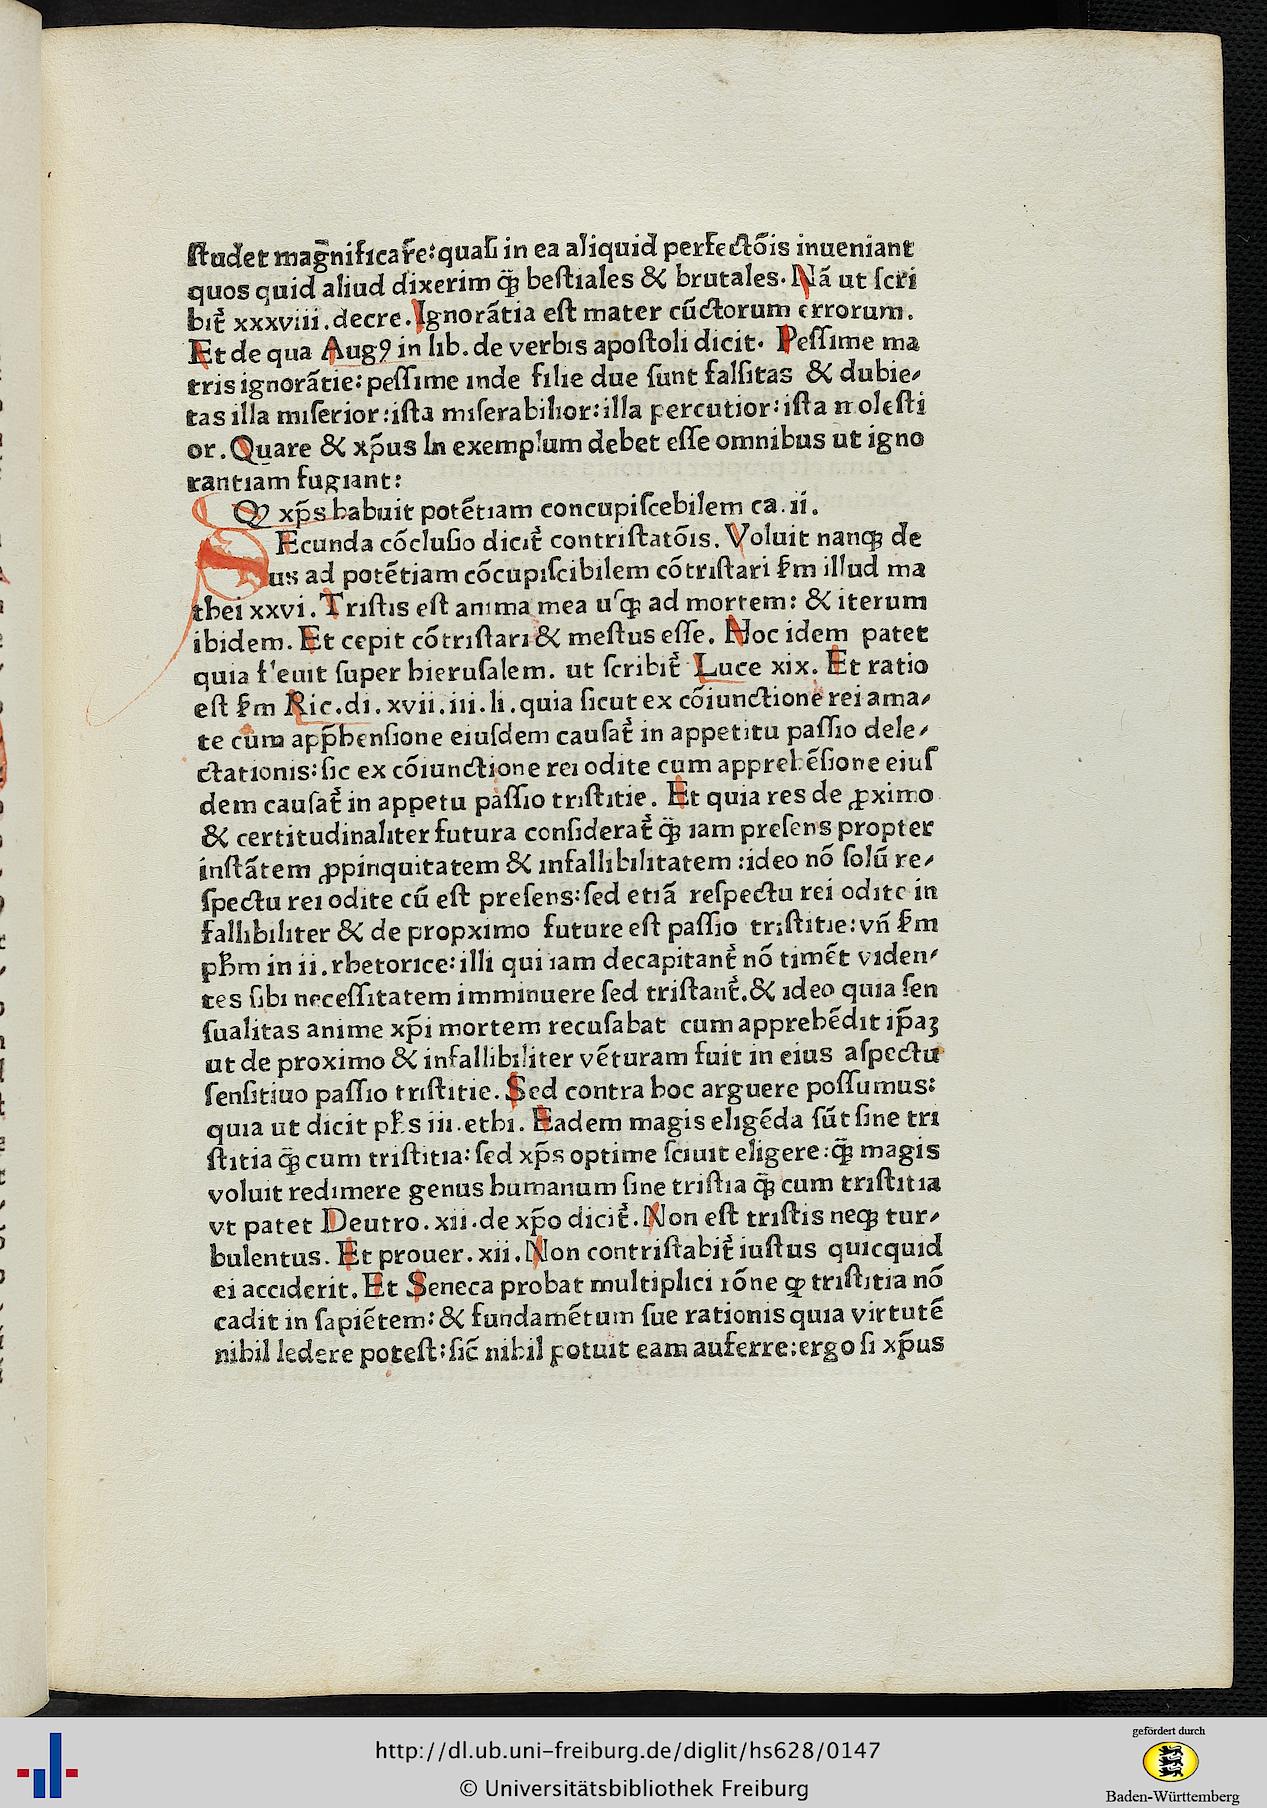 ſtudet mag̃nificar̃e: quaſi in ea aliquid perfectõis inueniant
quos quid aliud dixerim q̃ꝫ beſtiales & brutales. Nã ut ſcri
bit᷑ xxxviii. decre. Ignorãtia eſt mater cũctorum errorum.
Et de qua Augꝰ in lib. de verbis apoſtoli dicit. Peſſime ma
tris ignorãtie: peſſime inde filie due ſunt falſitas & dubie⸗
tas illa miſerior: iſta miſerabilior: illa percutior: iſta moleſti
or. Quare & xp̃us In exemplum debet eſſe omnibus ut igno
rantiam fugiant:
Ꝙ xp̃s habuit potẽtiam concupiſcebilem ca. ii.
SEcunda cõcluſio dicit᷑ contriſtatõis. Voluit nanqꝫ de
us ad potẽtiam cõcupiſcibilem cõtriſtari ẜm illud ma
thei xxvi. Triſtis eſt anima mea uſqꝫ ad mortem: & iterum
ibidem. Et cepit cõtriſtari & meſtus eſſe. Hoc idem patet
quia fleuit ſuper hieruſalem. ut ſcribit᷑ Luce xix. Et ratio
eſt ẜm Ric. di. xvii. iii. li. quia ſicut ex cõiunctione rei ama⸗
te cum app̃henſione eiuſdem cauſat᷑ in appetitu paſſio dele⸗
ctationis: ſic ex cõiunctione rei odite cum apprehẽſione eiuſ
dem cauſat᷑ in appetu paſſio triſtitie. Et quia res de ꝓximo
& certitudinaliter futura conſiderat᷑ q̃ꝫ iam preſens propter
inſtãtem ꝓpinquitatem & infallibilitatem: ideo nõ ſolũ re⸗
ſpectu rei odite cũ eſt preſens: ſed etiã reſpectu rei odite in
fallibiliter & de propximo future eſt paſſio triſtitie: vñ ẜm
pħm in ii. rhetorice: illi qui iam decapitant᷑ nõ timẽt viden⸗
tes ſibi neceſſitatem imminuere ſed triſtant᷑. & ideo quia ſen
ſualitas anime xp̃i mortem recuſabat cum apprehẽdit ip̃aꝫ
ut de proximo & infallibiliter vẽturam fuit in eius aſpectu
ſenſitiuo paſſio triſtitie. Sed contra hoc arguere poſſumus:
quia ut dicit pħs iii. ethi. Eadem magis eligẽda ſũt ſine tri
ſtitia q̃ꝫ cum triſtitia: ſed xp̃s optime ſciuit eligere: q̃ꝫ magis
voluit redimere genus humanum ſine triſtia q̃ꝫ cum triſtitia
vt patet Deutro. xii. de xp̃o dicit᷑. Non eſt triſtis neqꝫ tur⸗
bulentus. Et prouer. xii. Non contriſtabit᷑ iuſtus quicquid
ei acciderit. Et Seneca probat multiplici rõne ꝙ triſtitia nõ
cadit in ſapiẽtem: & fundamẽtum ſue rationis quia virtutẽ
nihil ledere poteſt: ſic̃ nihil potuit eam auferre: ergo ſi xp̃us
http://dl.ub.uni-freiburg.de/diglit/hs628/0147
© Universitätsbibliothek Freiburg
gefördert durch
Baden-Württemberg